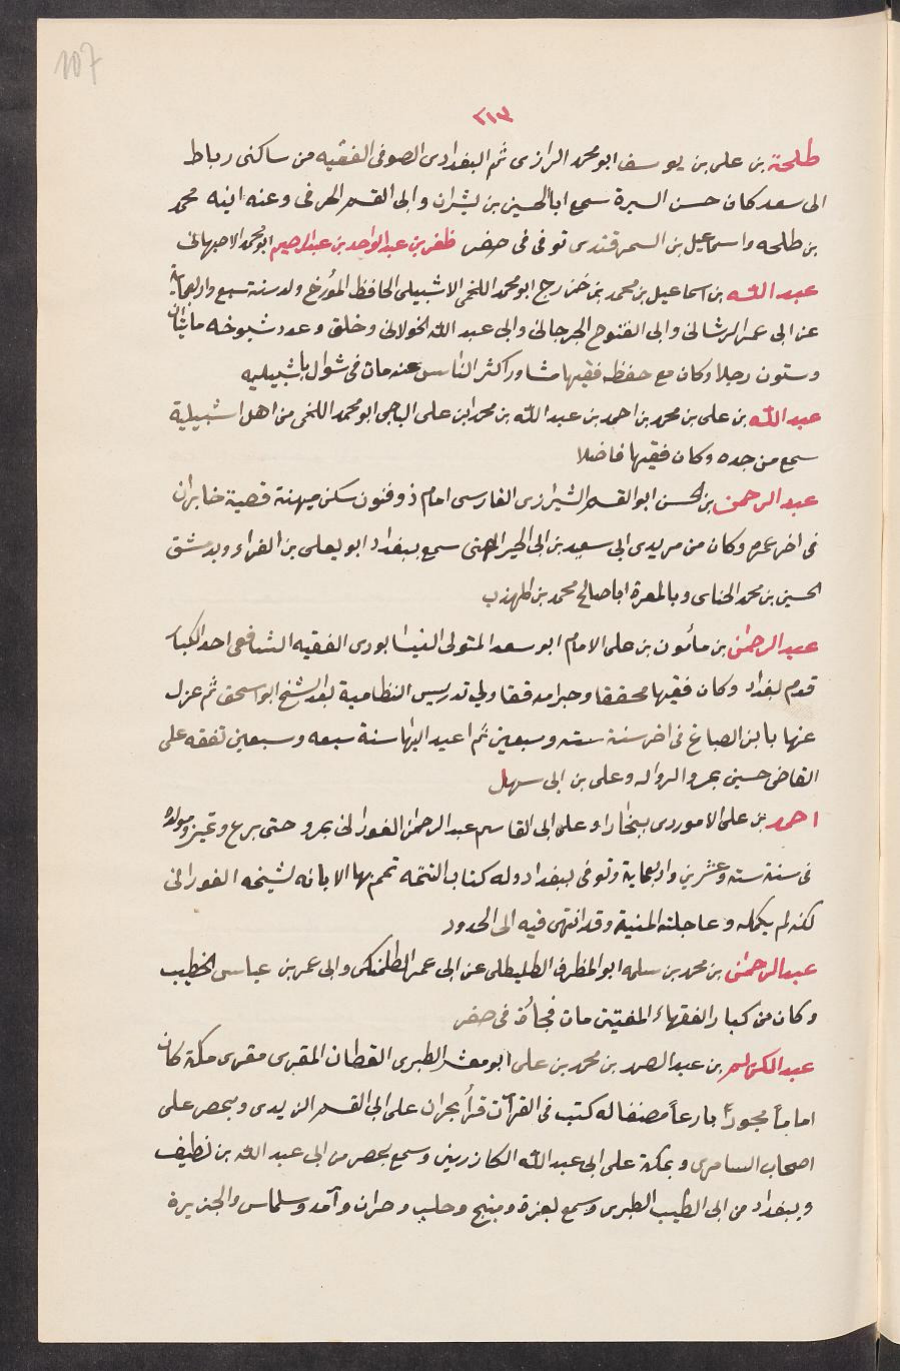 107
٢١٣
طلحة بن على بن يوسف ابو محمد الرازى ثم البغدادى الصوفى الفقيه من ساكنى رباط
ابى سعد كان حسن السيرة سمع ابا الحسين بن بشران وابى القسم الحرفى وعنه ابنه محمد
بن طلحه واسماعيل بن السمرقندى توفى فى صفر ظفر بن عبد الواحد بن عبد الرحيم ابو محمد الاصبهانى
عبد الله بن اسماعيل بن محمد بن خزرج ابو محمد اللخمى الاشبيلى الحافظ المؤرخ ولد سنة سبع واربعماية
عن ابى عمر الرشانى وابى الفتوح الجرجانى وابى عبد الله الخولانى وخلق وعدد شيوخه مائتان
وستون رجلا وكان مع حفظه فقيها مشاورا اكثر الناس عنه مات فى شوال باشبيليه
عبد الله بن على بن محمد بن احمد بن عبد الله بن محمد ابن على الباجى ابو محمد اللخمى من اهل اشبيلية
سمع من جده وكان فقيها فاضلا
عبد الرحمن بن الحسن ابو القسم الشيرازى الفارسى امام ذو فنون سكن ميهنة قصبة خابران
فى اخر عمره وكان من مريدى ابى سعيد بن ابى الخير المهنى سمع ببغداد ابو يعلى بن الفراء وبدمشق
الحسين بن محمد الحناى وبالمعرة ابا صالح محمد بن المهذب
عبد الرحمن بن مأمون بن على الامام ابو سعد المتولى النيسابورى الفقيه الشافعى احد الكبار
قدم بغداد وكان فقيها محققا وحبرا مدققا ولى تدريس النظامية بعد الشيخ ابو اسحق ثم عزل
عنها بابن الصباغ فى اخر سنة سته وسبعين ثم اعيد اليها سنة سبعه وسبعين تفقه على
القاضى حسين بمرو الروذ وعلى بن ابى سهل
احمد بن على الابيوردى ببخارا وعلى ابى القاسم عبد الرحمن الفورانى بمرو حتى برع وتميز ومولده
فى سنة سته وعشرين واربعماية وتوفى ببغداد وله كتاب التتمه تمم بها الابانه لشيخه الفورانى
لكنه لم يكمله وعاجلته المنية وقد انتهى فيه الى الحدود
عبد الرحمن بن محمد بن سلمه ابو المظرف الطليطلى عن ابى عمر الطلمنكى وابى عمر بن عياسى الخطيب
وكان من كبار الفقهاء المفتين مات فجأة فى صفر
عبد الكريم بن عبد الصمد بن محمد بن على ابو معشر الطبرى القطان المقرى مقرى مكة كان
اماماً مجوداً بارعاً مصنفا له كتب فى القرآت قرأ بحران على ابى القسم الزيدى وبمصر على
اصحاب السامرى وبمكة على ابى عبد الله الكازرينى وسمع بمصر من ابى عبد الله بن نظيف
وببغداد من ابى الطيب الطبرى وسمع بغزة ومنبج وحلب وحران وآمد وسلماس والجزيرة